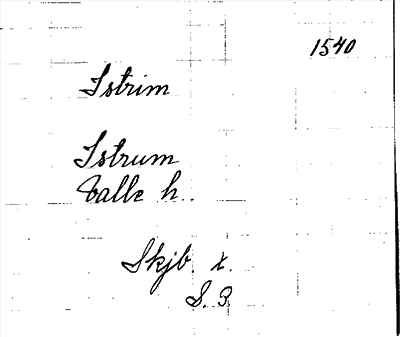 1540
Istrim
Istrum
Valle h.
Skjb. x.
S. 3.